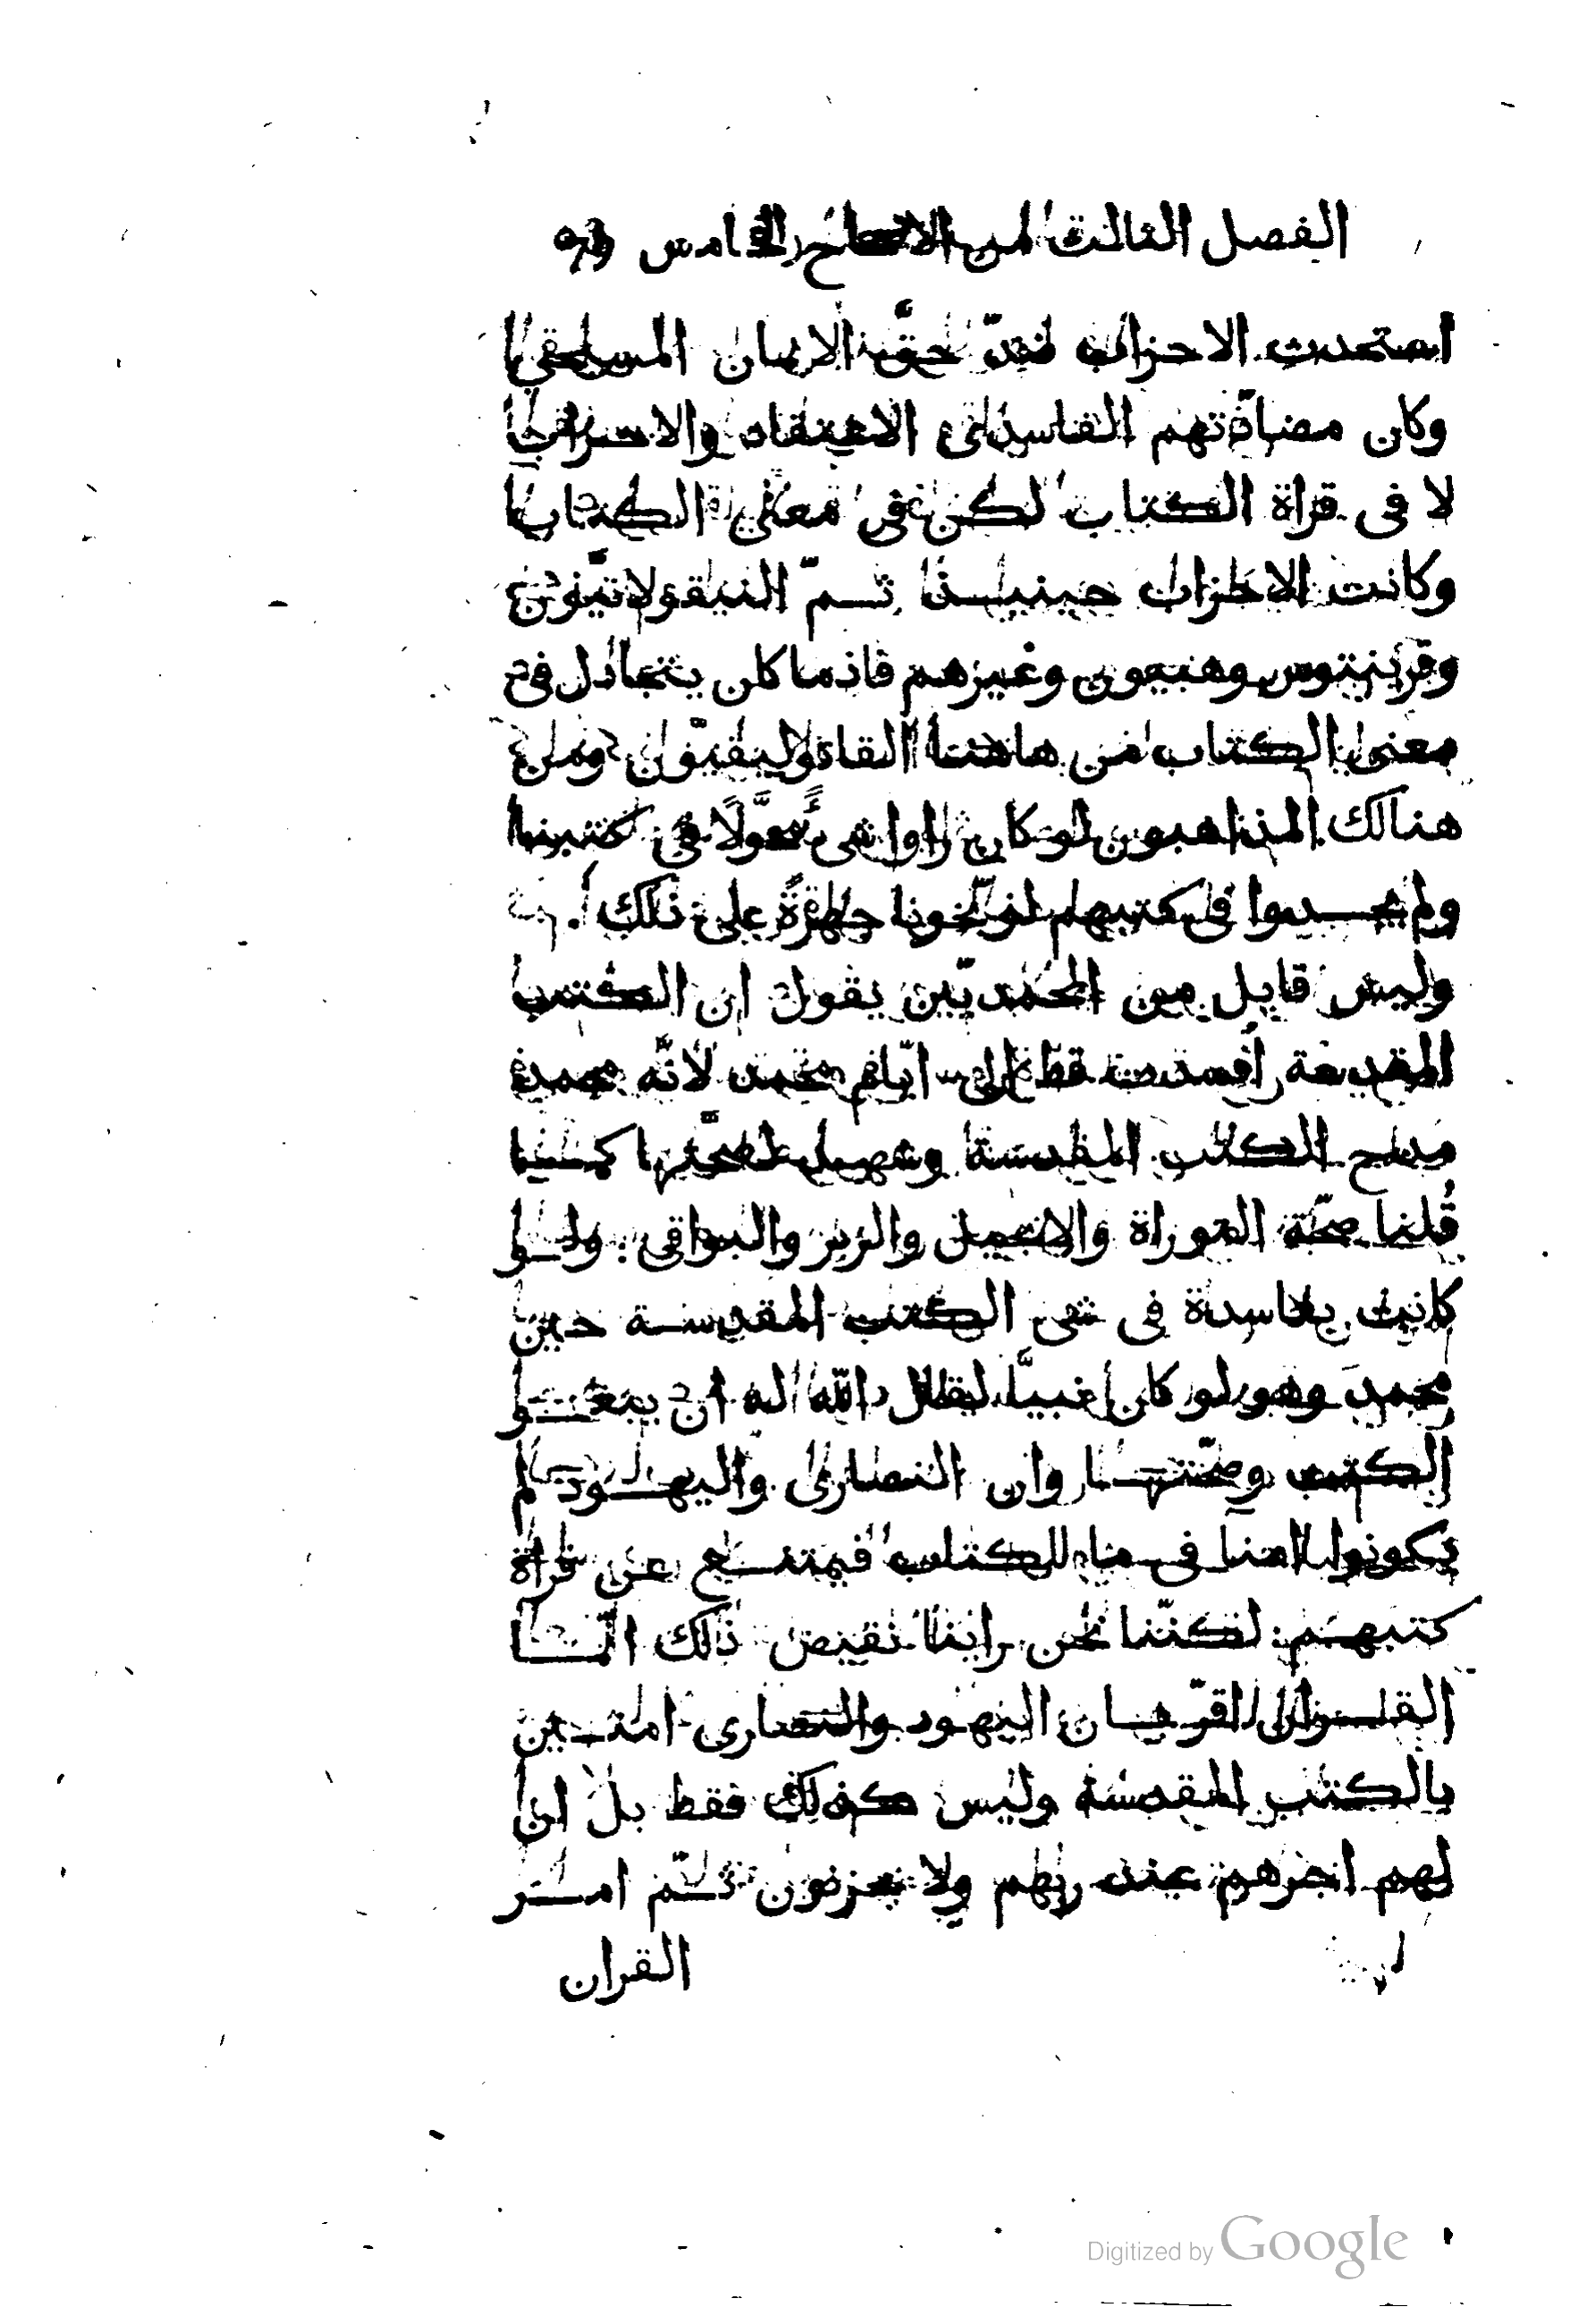 الفصل الثالث من الاصحاح الخامس
استحدت الاحزاب ضدّ حقّ الايمان المسيحى
وكان مضادّتهم الفاسد فى الاعتقاد والاستراب
لا فى قراة الكتاب لكن فى معنى الكتاب
وكانت الاحزاب حينيذ ثمّ النيقولاتيّون
وقرينتوس وهبيون وغيرهم فاذما كان يتجادل فى
معنى الكتاب من هاهنا القاثوليقيّون ومن
هنالك المذاهبون لو كان راوا شى محوّلًا فى كتبنا
ولم يجدوا فى كتبهم لوبّخونا جهرةً على ذلك
وليس قايل من المحمديّين يقول ان الكتب
المقدسة أفسدت قط الى ايّام محمد لانّه محمد
مدح الكتب المقدسة وشهد لصحّتها كما
قُلنا صحّة التوراة والانجيل والزبر والبواقى ولو
كانت بفاسدة فى شى الكتب المقدسة حين
محمد وهو لو كان نبيًّا لقال الله له ان
الكتب وصحّتها وان النصارى واليهود لم
يكونوا امنا فى الكتاب فيمتنع عن قراة
كتبهم لكنّنا نحن راينا نقيض ذلك
القران اقرّ بان اليهود والنصارى امنين
بالكتب المقدسة وليس كذلك فقط بل ان
لهم اجرهم عند ربهم ولا يحزنون ثمّ امر
القران
Digitized by Google